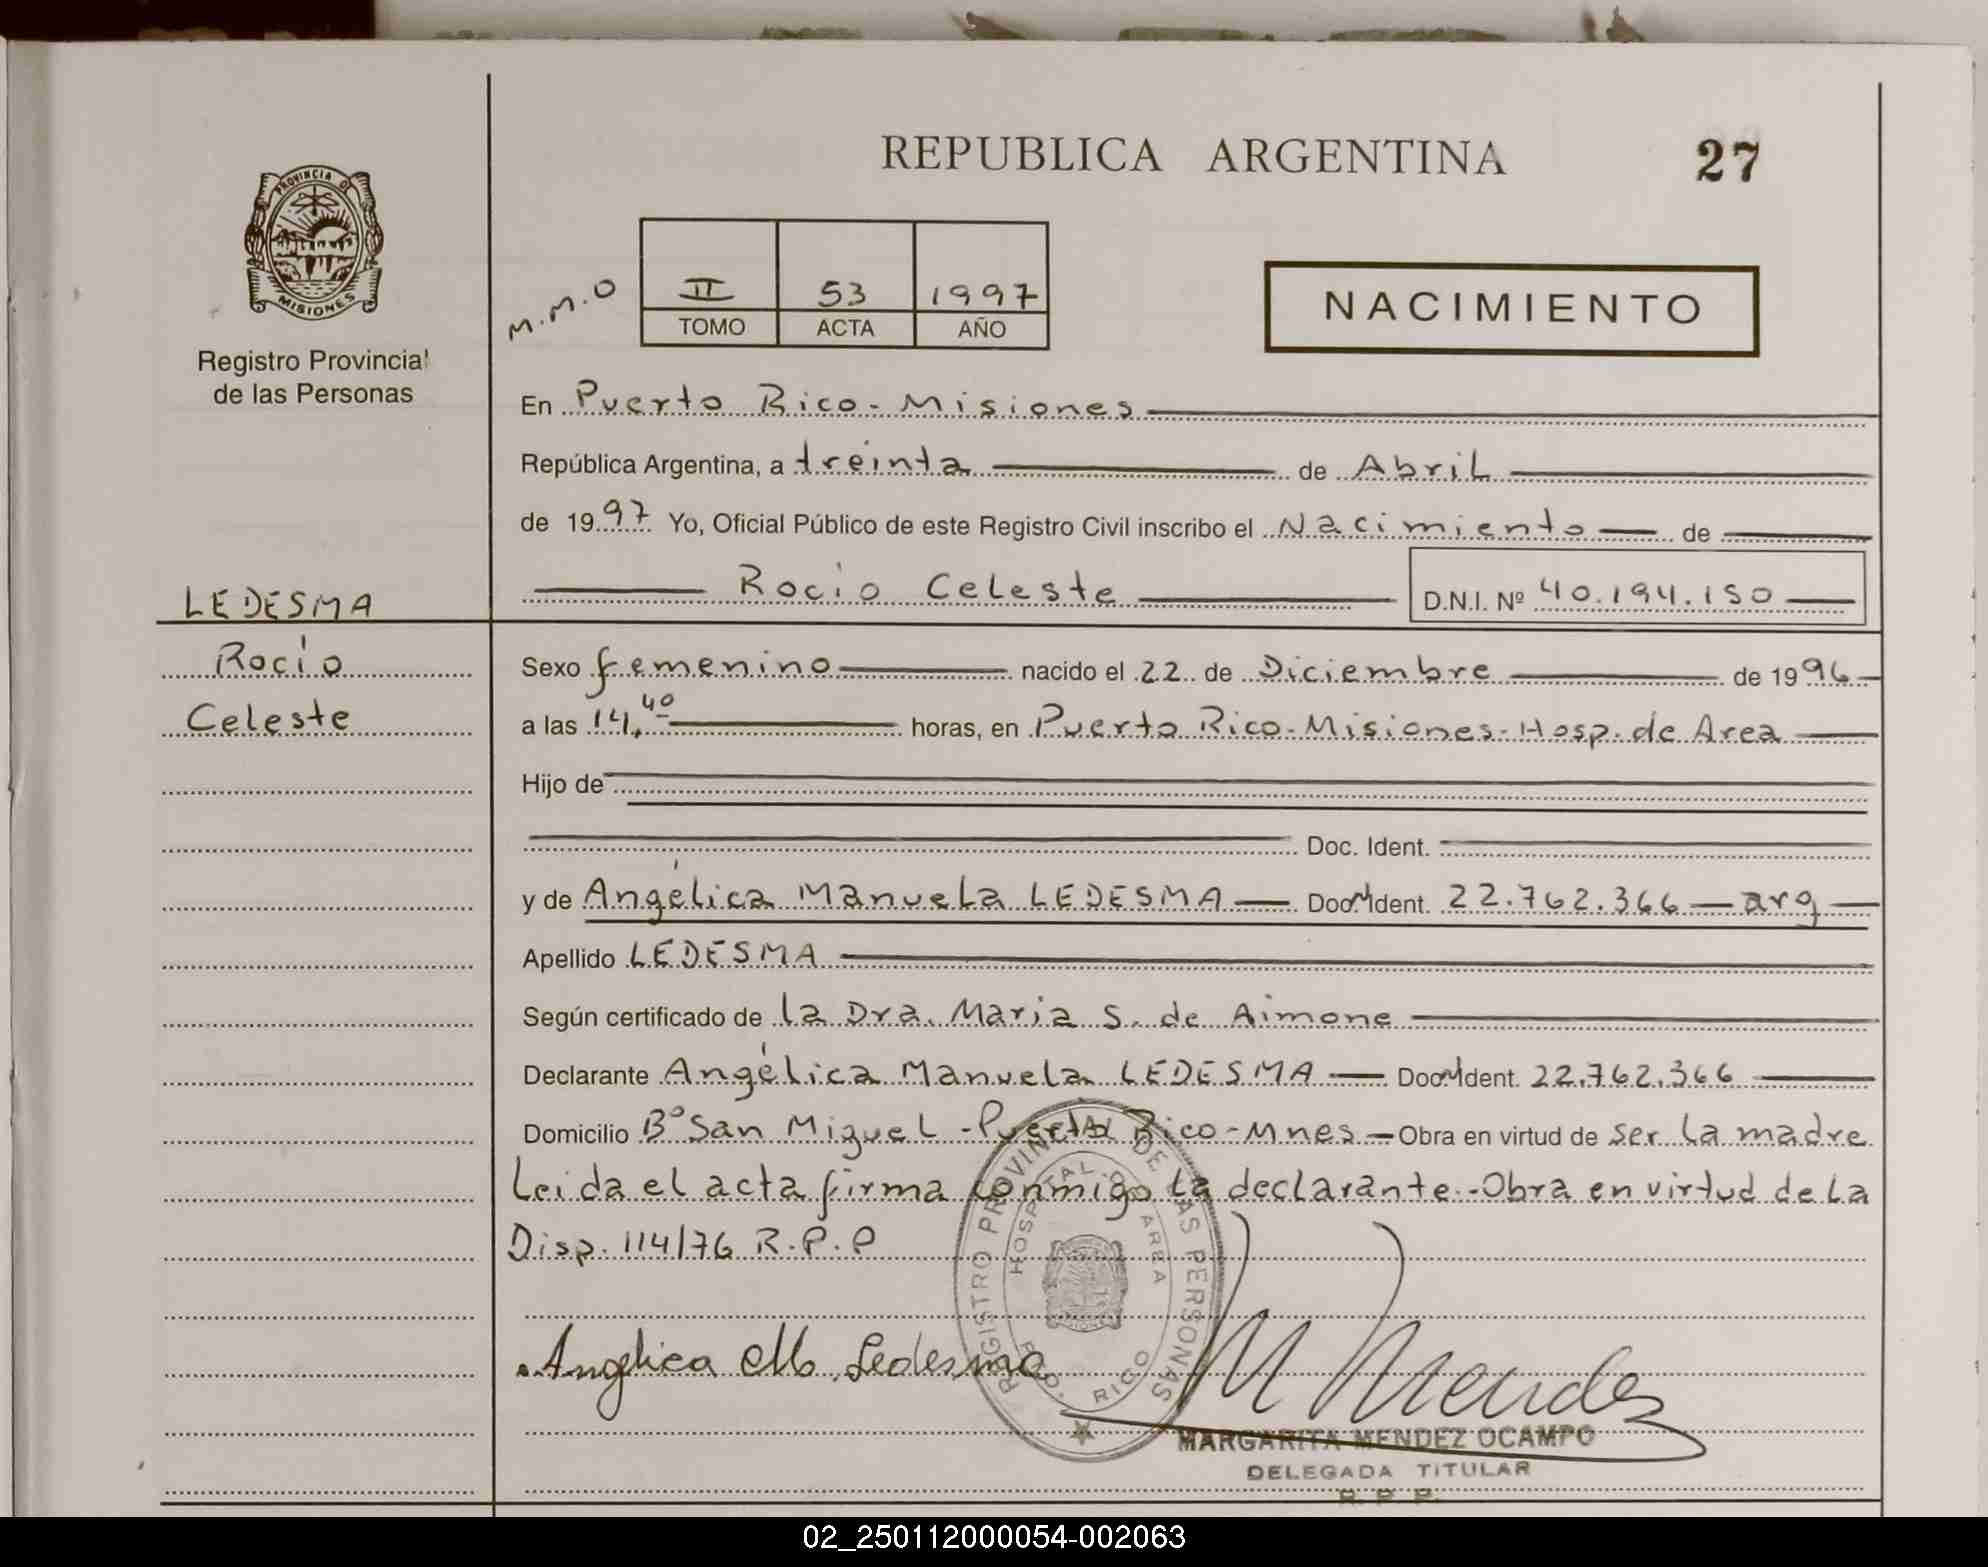 REPUBLICA ARGENTINA
27
PROVINCIA DE
MISIONES
Registro Provincial
de las Personas
M.M.O
II 53 1997
TOMO ACTA AÑO
NACIMIENTO
En Puerto Rico - Misiones
República Argentina, a treinta de Abril
de 1997 Yo, Oficial Público de este Registro Civil inscribo el Nacimiento de
Rocío Celeste D.N.I. Nº 40.194.150
LEDESMA
Rocío
Celeste
Sexo femenino nacido el 22 de Diciembre de 1996
a las 14,40 horas, en Puerto Rico - Misiones - Hosp. de Area
Hijo de
Doc. Ident.
y de Angélica Manuela LEDESMA Doc. Ident. 22.762.366 - arg
Apellido LEDESMA
Según certificado de la Dra. Maria S. de Aimone
Declarante Angélica Manuela LEDESMA Doc. Ident. 22.762.366
Domicilio Bº San Miguel - Puerto Rico - Mnes - Obra en virtud de ser la madre
Leida el acta firma conmigo la declarante - Obra en virtud de la
Disp. 114/76 R.P.P
REGISTRO PROVINCIAL DE LAS PERSONAS
HOSPITAL DE AREA
PTO. RICO
Angelica M. Ledesma
M Mendez
MARGARITA MENDEZ OCAMPO
DELEGADA TITULAR
R. P. P.
02_250112000054-002063